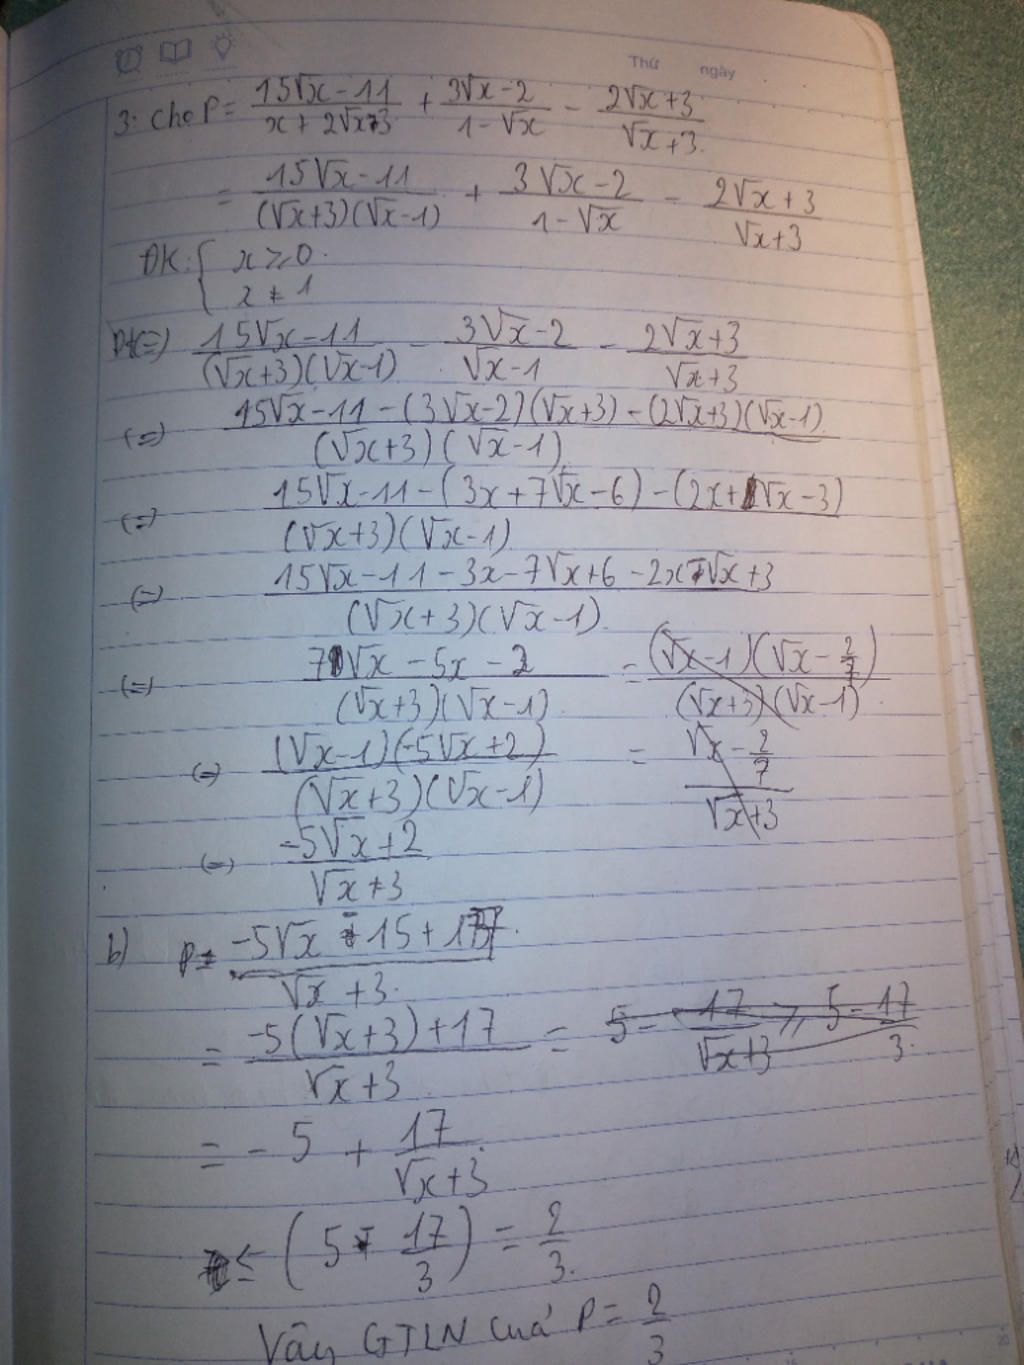 Thứ ngày
3. cho P = (15√x - 11)/(x + 2√x - 3) + (3√x - 2)/(1 - √x) - (2√x + 3)/(√x + 3)
= (15√x - 11)/((√x+3)(√x-1)) + (3√x - 2)/(1 - √x) - (2√x + 3)/(√x+3)
ĐK: { x ⩾ 0
x ≠ 1
(=) (15√x - 11)/((√x+3)(√x-1)) - (3√x - 2)/(√x - 1) - (2√x + 3)/(√x+3)
(=) (15√x - 11 - (3√x-2)(√x+3) - (2√x+3)(√x-1))/((√x+3)(√x-1))
(=) (15√x - 11 - (3x + 7√x - 6) - (2x + √x - 3))/((√x+3)(√x-1))
(=) (15√x - 11 - 3x - 7√x + 6 - 2x - √x + 3)/((√x+3)(√x-1))
(=) (7√x - 5x - 2)/((√x+3)(√x-1)) = ((√x-1)(√x - 2/7))/((√x+3)(√x-1))
(=) ((√x-1)(-5√x+2))/((√x+3)(√x-1)) = (√x - 2/7)/(√x+3)
(=) (-5√x + 2)/(√x + 3)
b) P = (-5√x - 15 + 17)/(√x + 3)
= (-5(√x+3) + 17)/(√x + 3) = 5 - 17/(√x+3) ⩾ 5 - 17/3
= -5 + 17/(√x+3)
≤ (5 - 17/3) = 2/3
Vậy GTLN của P = 2/3